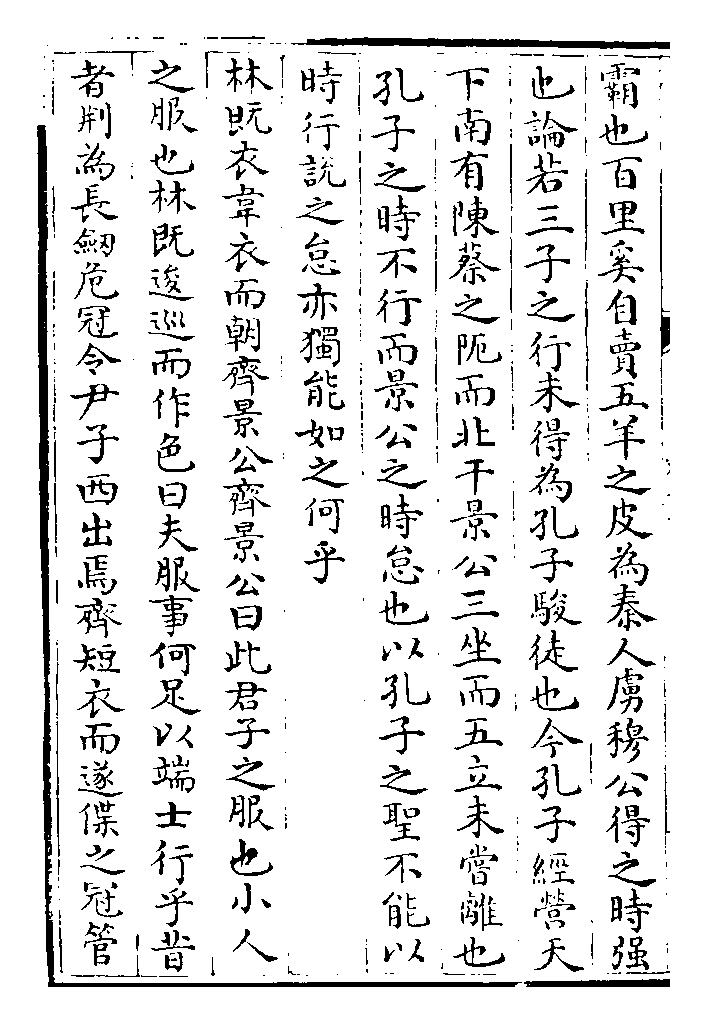 霸也百里奚自賣五羊之皮為秦人虜穆公得之時强
也論若三子之行未得為孔子駿徒也今孔子經營天
下南有陳蔡之阨而北干景公三坐而五立未嘗離也
孔子之時不行而景公之時怠也以孔子之聖不能以
時行說之怠亦獨能如之何乎
林既衣韋衣而朝齊景公齊景公曰此君子之服也小人
之服也林既逡巡而作色曰夫服事何足以端士行乎昔
者荆為長劒危冠令尹子西出焉齊短衣而遂偞之冠管